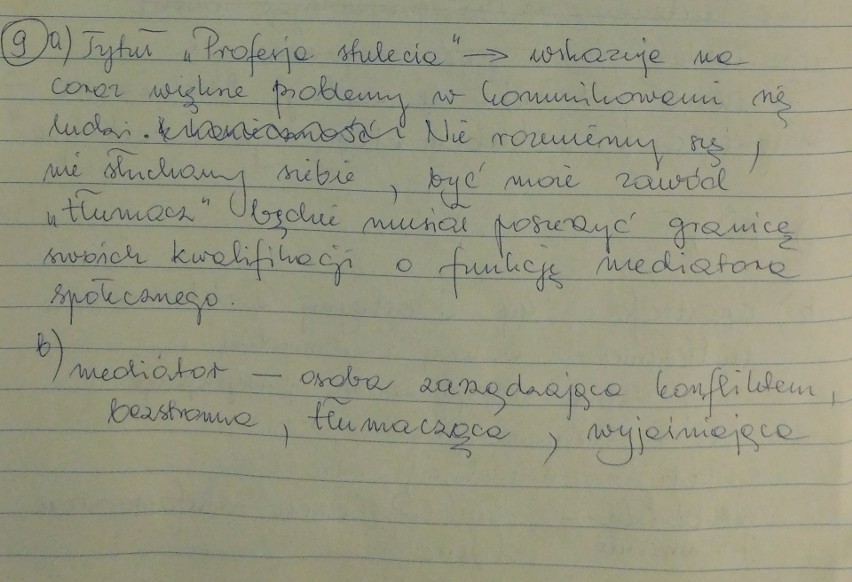 9 a) Tytuł „Profesja stulecia" → wskazuje na
coraz większe problemy w komunikowaniu się
ludzi. Nie rozumiemy się,
nie słuchamy siebie, być może zawód
„tłumacz" będzie musiał poszerzyć granicę
swoich kwalifikacji o funkcję mediatora
społecznego.
b) mediator – osoba zarządzająca konfliktem,
bezstronna, tłumacząca, wyjaśniająca